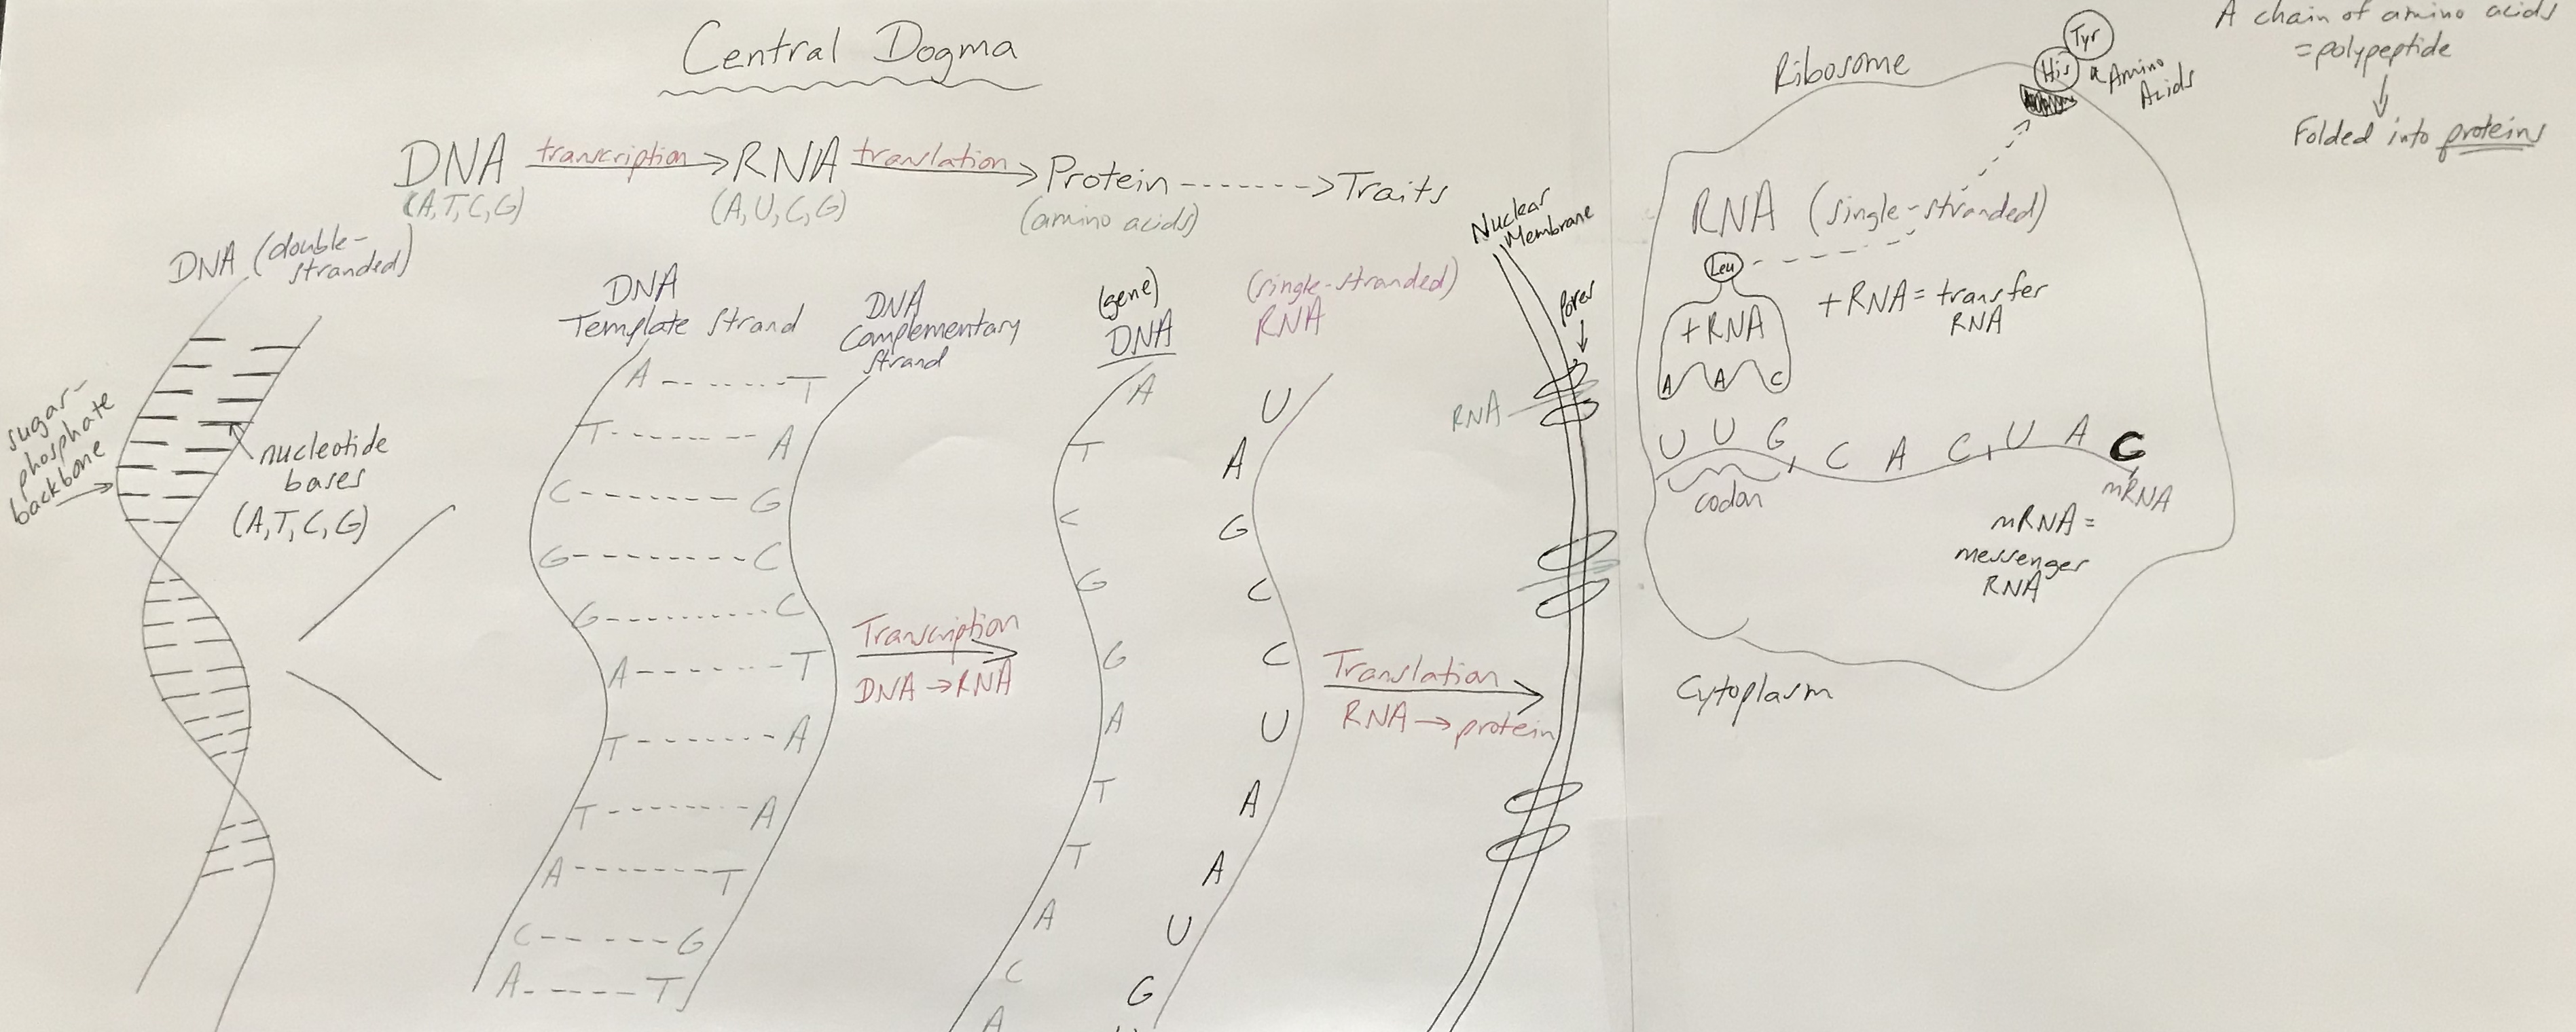 Central Dogma
DNA transcription RNA translation Protein Traits
(A,T,C,G) (A,U,C,G) (amino acids)
DNA (double-
stranded)
sugar-
phosphate
backbone
nucleotide
bases
(A,T,C,G)
DNA
Template Strand
DNA
Complementary
Strand
A T
T A
C G
G C
G C
A T
T A
T A
A T
C G
A T
Transcription
DNA → RNA
(gene)
DNA
(single-stranded)
RNA
A U
T A
C G
G C
G C
A U
T A
T A
A U
C G
A
Translation
RNA → protein
Nuclear
Membrane
Pores
RNA
Ribosome
Tyr
His
Amino
Acids
RNA (single-stranded)
Leu
tRNA
A A C
tRNA = transfer
RNA
U U G, C A C, U A C
codon
mRNA
mRNA =
messenger
RNA
Cytoplasm
A chain of amino acids
= polypeptide
Folded into proteins